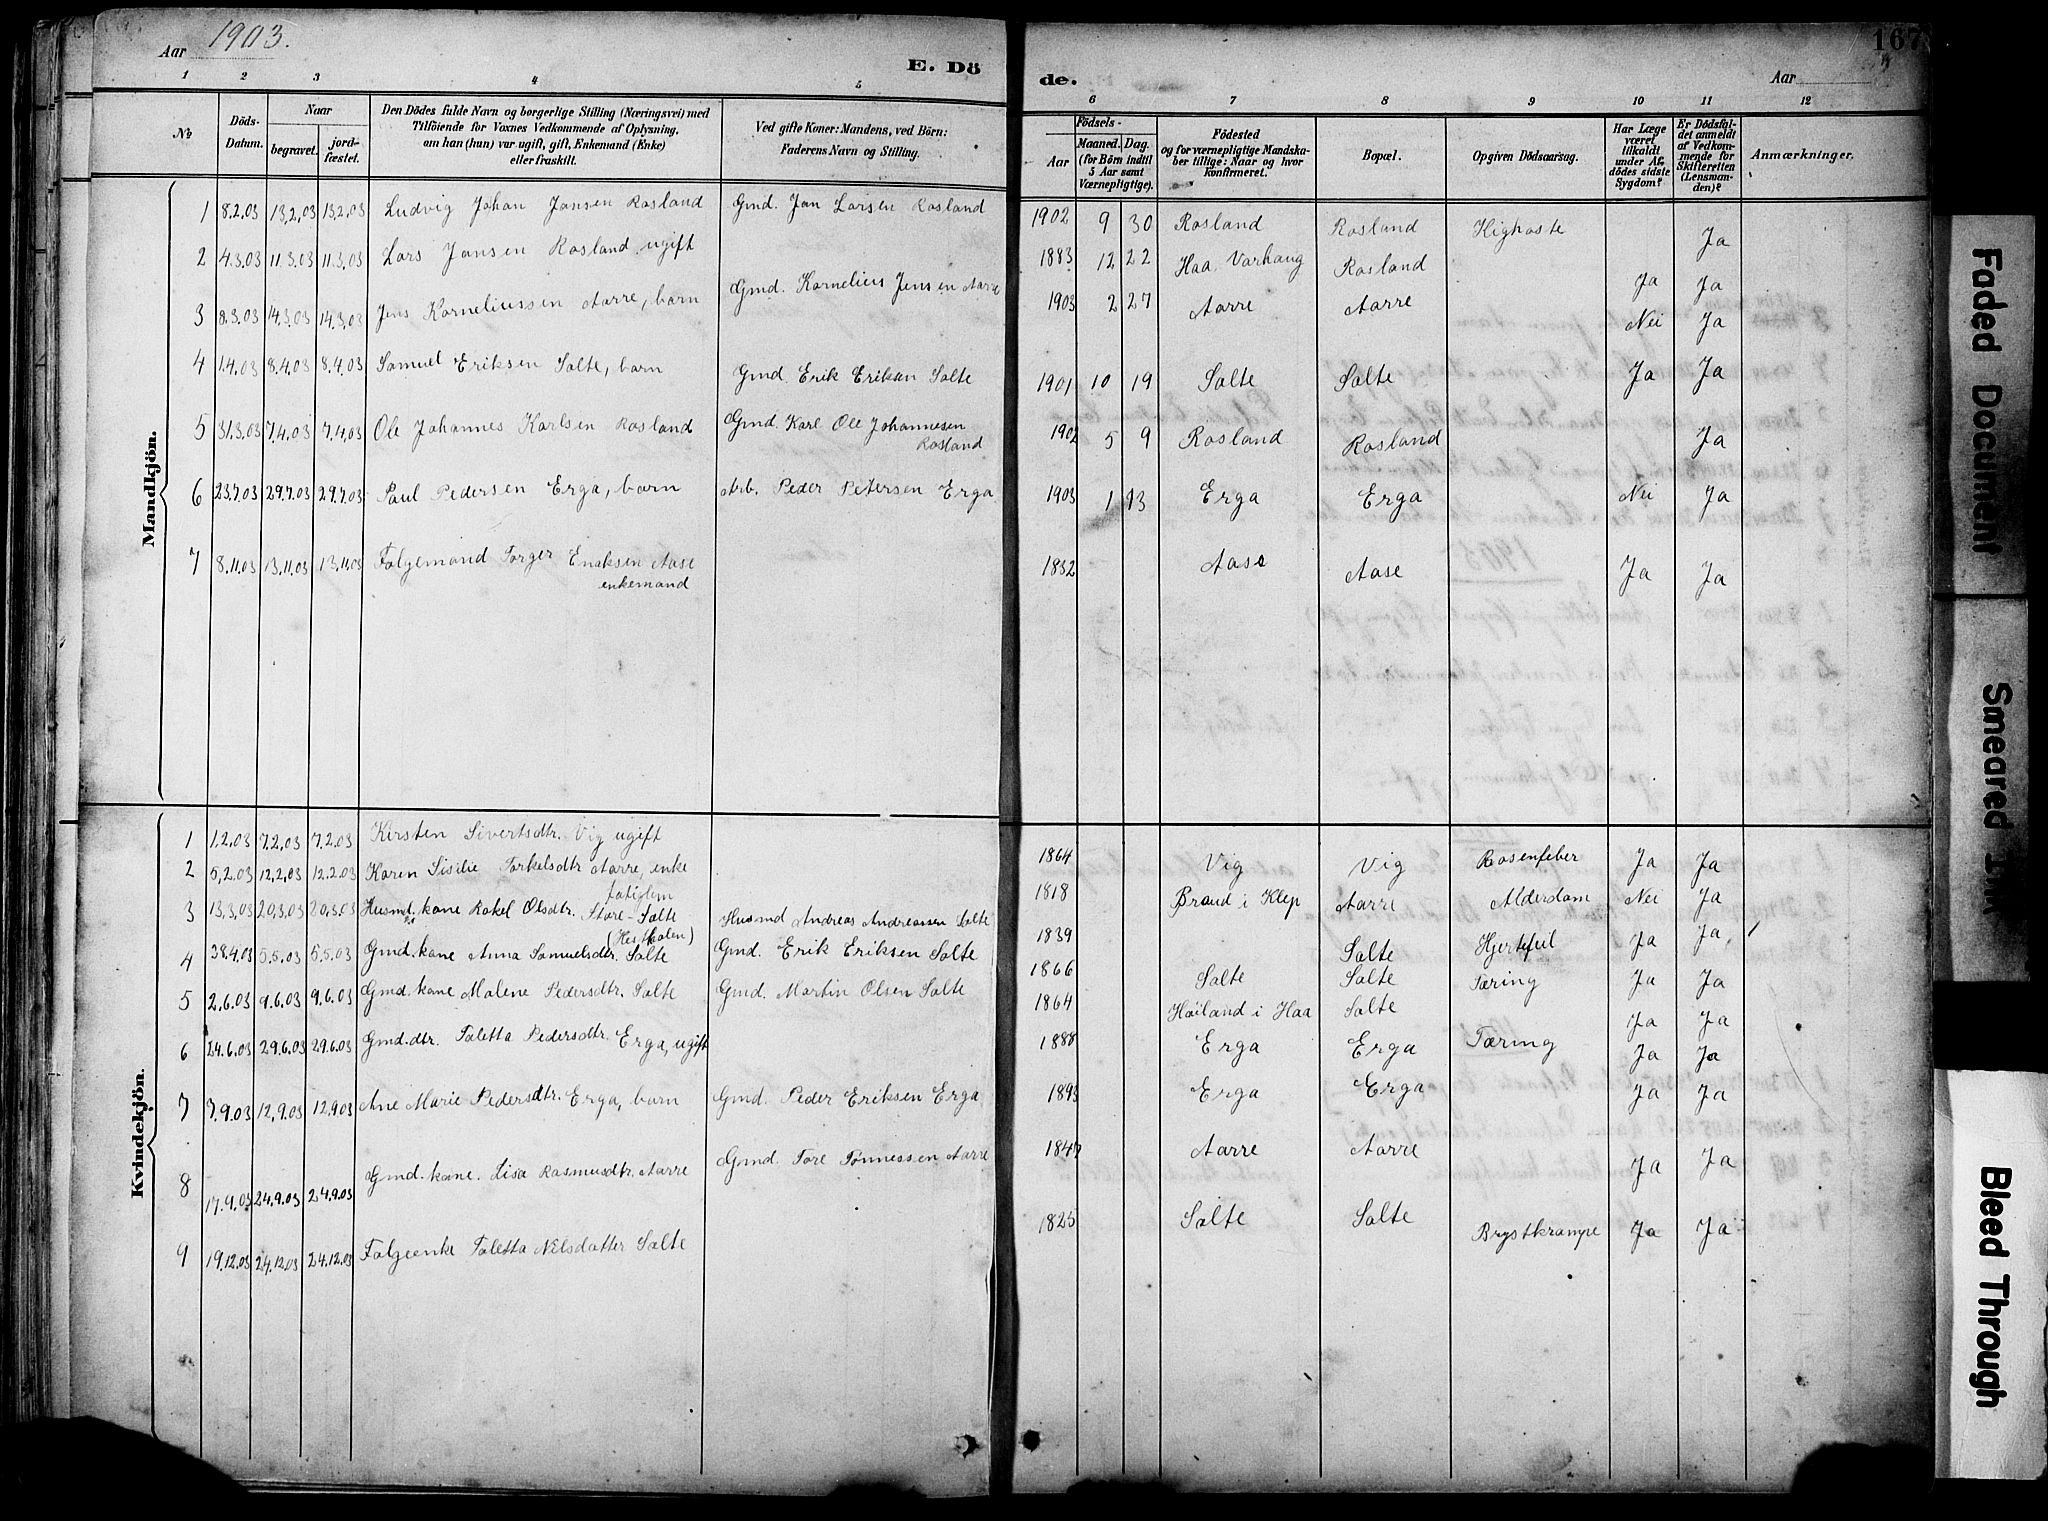 Aar 1903.
E. Dö
de.
Aar
167
1 2 3 4 5
6 7 8 9 10 11 12
№
Döds-Datum.
Naar
begravet.
jord-fæstet.
Den Dödes fulde Navn og borgerlige Stilling (Næringsvei) med
Tilföiende for Voxnes Vedkommende af Oplysning,
om han (hun) var ugift, gift, Enkemand (Enke)
eller fraskilt.
Ved gifte Koner: Mandens, ved Börn:
Faderens Navn og Stilling.
Födsels-
Aar
Maaned. Dag.
(for Börn indtil
5 Aar samt
Værnepligtige).
Födested
og for værnepligtige Mandska-
ber tillige: Naar og hvor
konfirmeret.
Bopæl.
Opgiven Dödsaarsag.
Har Læge
været
tilkaldt
under Af-
dödes sidste
Sygdom?
Er Dödsfal-
det anmeldt
af Vedkom-
mende for
Skifteretten
(Lensman-
den)?
Anmærkninger.
Mandkjön.
1 8.2.03 13.2.03 13.2.03 Ludvig Johan Jansen Rosland Gmd. Jan Larsen Rosland 1902 9 30 Rosland Rosland Kighoste Ja
2 4.3.03 11.3.03 11.3.03 Lars Jansen Rosland ugift 1883 12 22 Haa. Varhaug Rosland Ja Ja
3 8.3.03 14.3.03 14.3.03 Jens Korneliussen Aarre, barn Gmd. Kornelius Jensen Aarre 1903 2 27 Aarre Aarre Nei Ja
4 1.4.03 8.4.03 8.4.03 Samuel Eriksen Salte, barn Gmd. Erik Eriksen Salte 1901 10 19 Salte Salte Ja Ja
5 31.3.03 7.4.03 7.4.03 Ole Johannes Karlsen Rosland Gmd. Karl Ole Johannesen
Rosland 1902 5 9 Rosland Rosland Ja
6 23.7.03 29.7.03 29.7.03 Paul Pedersen Erga, barn Arb. Peder Petersen Erga 1903 1 13 Erga Erga Nei Ja
7 8.11.03 13.11.03 13.11.03 Folgemand Torger Aase
enkemand 1832 Aase Aase Ja Ja
Kvindekjön.
1 1.2.03 7.2.03 7.2.03 Kirsten Sivertsdtr. Vig ugift 1864 Vig Vig Rosenfeber Ja Ja
2 5.2.03 12.2.03 12.2.03 Karen Sisilie Torkelsdtr Aarre, enke
fatiglem 1818 Braud i Klep Aarre Alderdom Nei Ja
3 13.3.03 20.3.03 20.3.03 Husmd. kane Rakel Olsdtr. Store-Salte Husmd Andreas Andreassen Salte 1839 Salte Hjertefeil Ja Ja
4 5.5.03 5.5.03 Gmd. kane Anna Samuelsdtr. Salte Gmd. Erik Eriksen Salte 1866 Salte Salte Tæring Ja Ja
5 2.6.03 9.6.03 9.6.03 Gmd. kane Malene Pedersdtr. Salte Gmd. Martin Olsen Salte 1864 Høiland i Haa Salte Ja Ja
6 24.6.03 29.6.03 29.6.03 Gmd.dtr. Taletta Pedersdtr. Erga, ugift 1888 Erga Erga Tæring Ja Ja
7 7.9.03 12.9.03 12.9.03 Ane Marie Pedersdtr. Erga, barn Gmd. Peder Eriksen Erga 1893 Erga Erga Ja Ja
8 17.9.03 24.9.03 24.9.03 Gmd. kane. Lisa Rasmusdtr. Aarre Gmd. Tore Tønnessen Aarre Aarre Aarre Ja Ja
9 19.12.03 24.12.03 24.12.03 Folgeenke Taletta Nelsdatter Salte 1825 Salte Salte Brystkrampe Ja Ja
Faded Document
Smeared Ink
Bleed Through